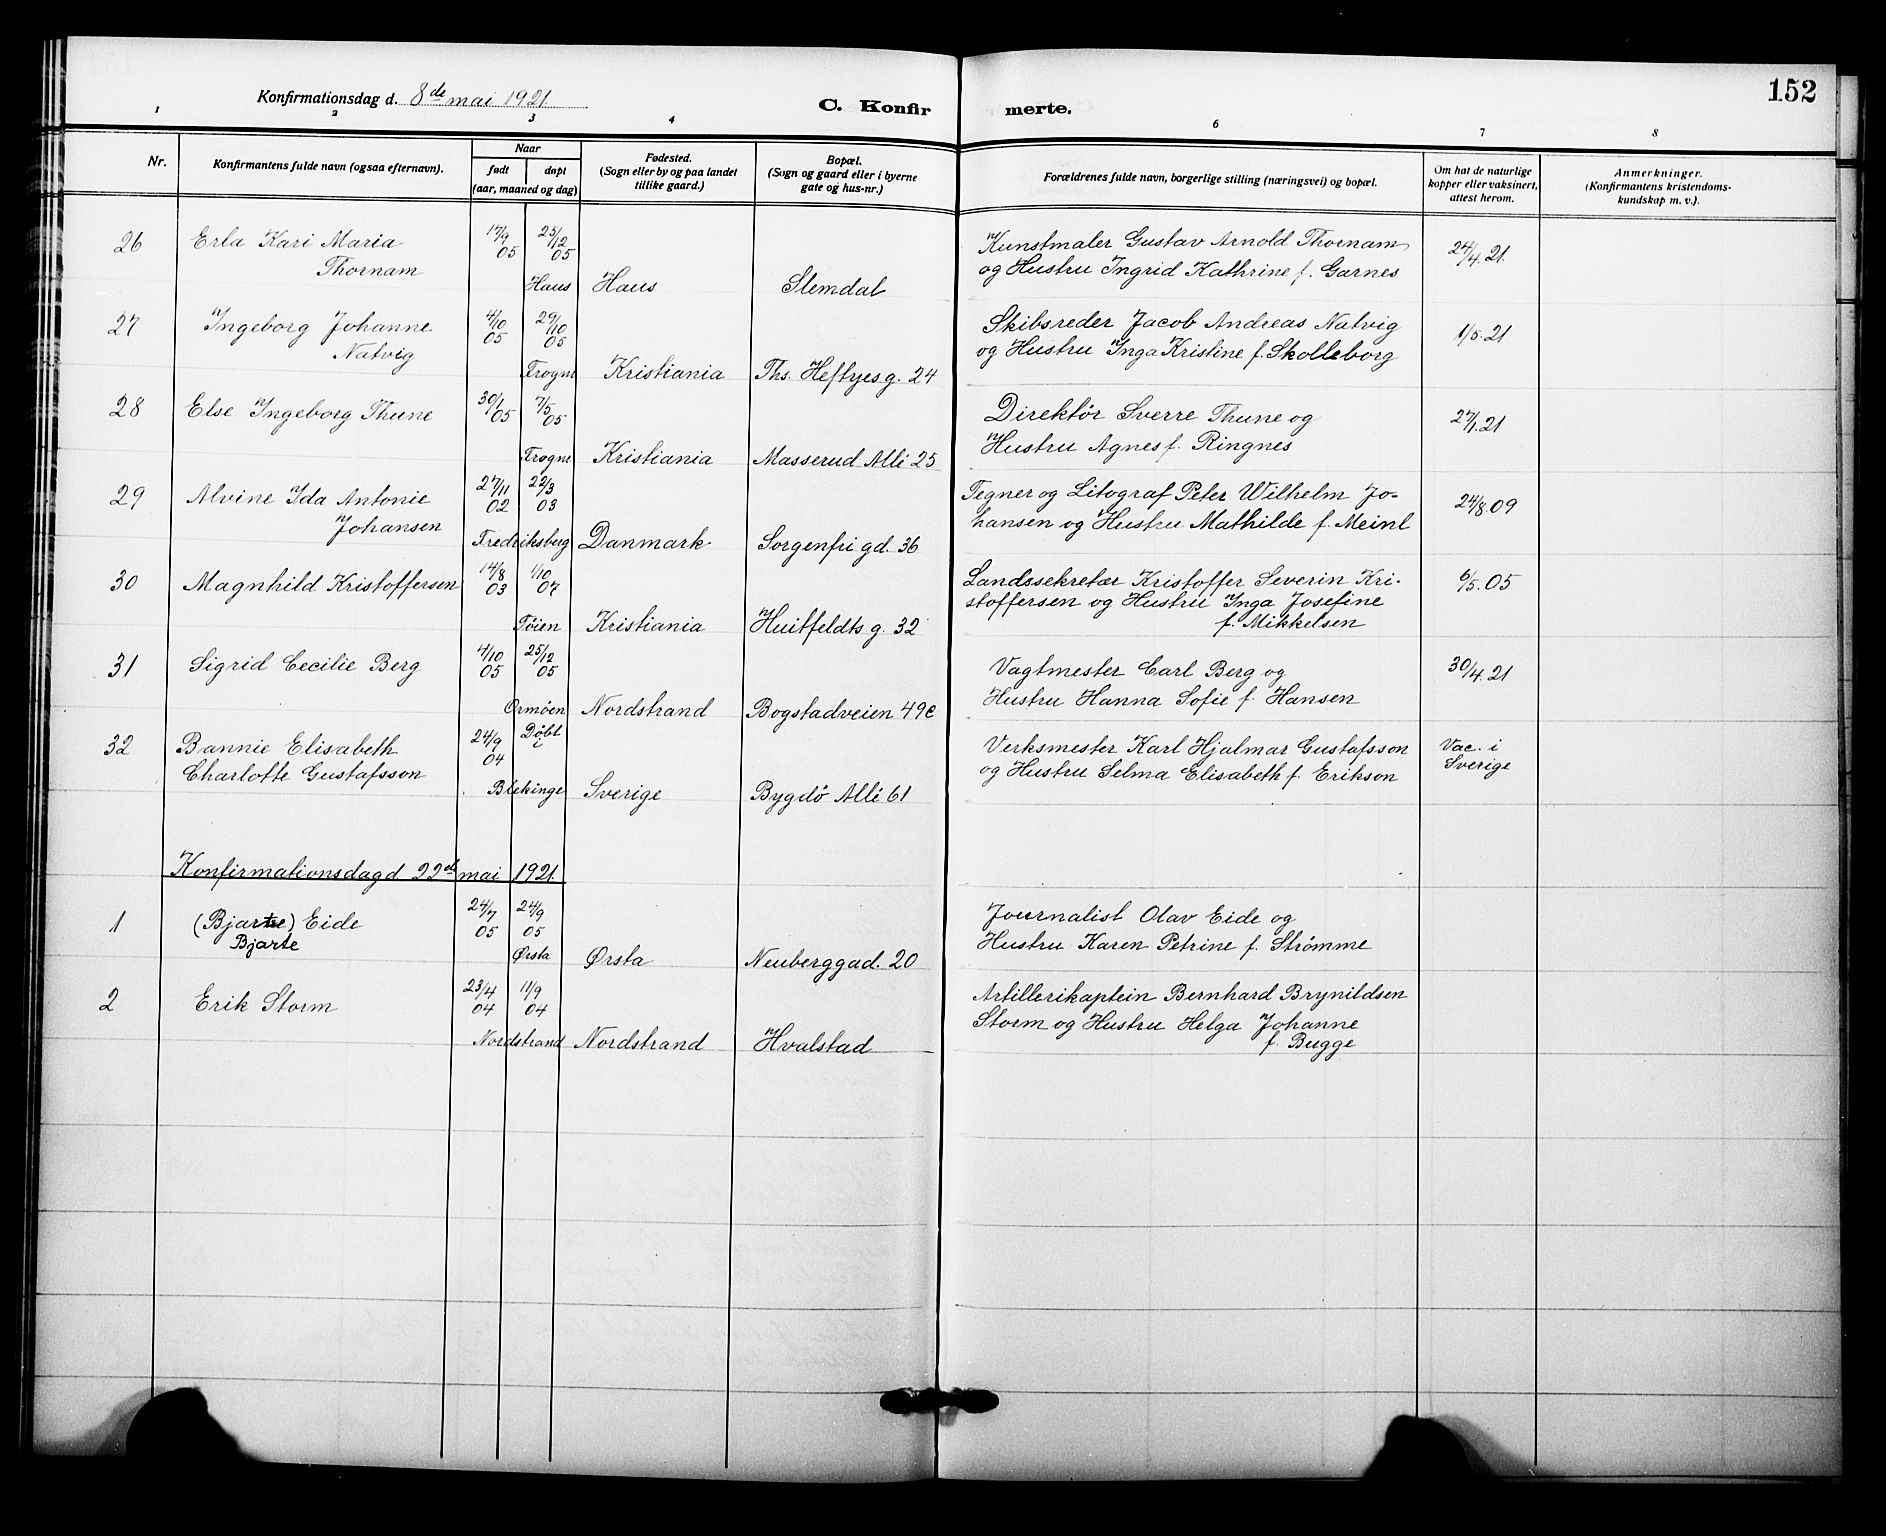 152
Konfirmationsdag d. 8de mai 1921.
C. Konfir merte.
1 2 3 4 6 7 8
Nr.
Konfirmantens fulde navn (ogsaa efternavn).
Naar
født døpt
(aar, maaned og dag)
Fødested.
(Sogn eller by og paa landet
tillike gaard.)
Bopæl.
(Sogn og gaard eller i byerne
gate og hus-nr.)
Forældrenes fulde navn, borgerlige stilling (næringsvei) og bopæl.
Om hat de naturlige
kopper eller vaksinert,
attest herom.
Anmerkninger.
(Konfirmantens kristendoms-
kundskap m. v.).
26 Erla Kari Maria 17/9 05 25/12 05 Kunstmaler Gustav Arnold Thornam 24/4.21.
Thornam og Hustru Ingrid Kathrine f. Garnes
Haus Haus Slemdal
27 Ingeborg Johanne 4/10 05 29/10 05 Skibsreder Jacob Andreas Natvig 1/5.21
Natvig og Hustru Inga Kristine f. Skolleborg
Frogne Kristiania Ths. Heftyes g. 24
28 Else Ingeborg Thune 30/1 05 7/5 05 Direktör Sverre Thune og 27/1.21
Hustru Agnes f. Ringnes
Frogne Kristiania Masserud Allé 25
29 Alvine Ida Antonie 27/11 02 22/3 03 Tegner og Litograf Peter Wilhelm Jo- 24/8.09
Johansen hansen og Hustru Mathilde f. Meinl
Fredriksberg Danmark Sorgenfri gd. 36
30 Magnhild Kristoffersen 14/8 03 1/10 04 Landssekretær Kristoffer Severin Kri- 6/5.05
stoffersen og Hustru Inga Josefine
f. Mikkelsen
Tøien Kristiania Huitfeldts g. 32
31 Sigrid Cecilie Berg 4/10 05 25/12 05 Vagtmester Carl Berg og 30/4.21
Hustru Hanna Sofie f. Hansen
Ormøen Nordstrand Bogstadveien 49c
32 Bannie Elisabeth 24/9 04 Døbt i Verksmester Karl Hjalmar Gustafsson Vac. i
Charlotte Gustafsson og Hustru Selma Elisabeth f. Erikson Sverige
Blekinge Sverige Bygdö Allé 61
Konfirmationsdag d 22de mai 1921.
1 (Bjarte) Eide 24/7 05 24/9 05 Journalist Olav Eide og
Bjarte Hustru Karen Petrine f. Strömme
Ørsta Ørsta Neuberggad. 20
2 Erik Storm 23/4 04 11/9 04 Artillerikaptein Bernhard Brynildsen
Storm og Hustru Helga Johanne
f. Bugge
Nordstrand Nordstrand Hvalstad